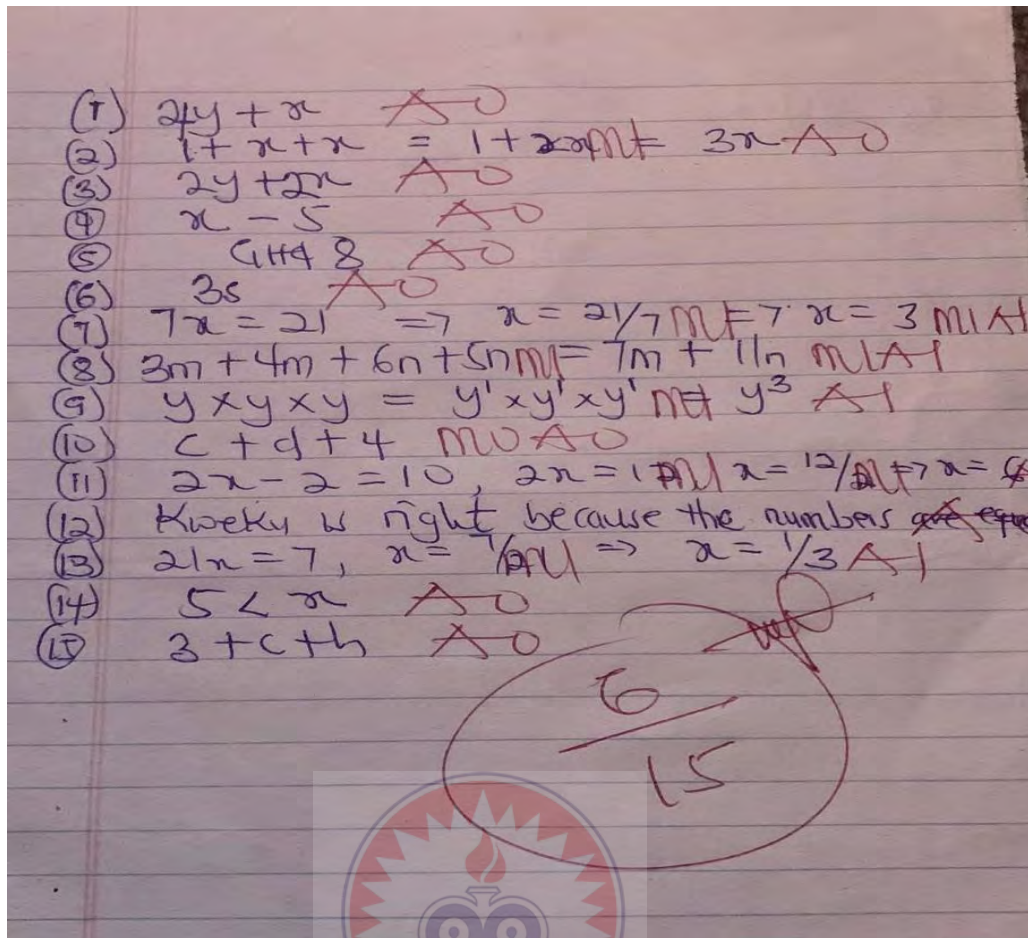 (1) 24y + x A0
(2) 1 + x + x = 1 + 2x M1 = 3x A0
(3) 2y + 2x A0
(4) x - 5 A0
(5) GH¢ 8 A0
(6) 3s A0
(7) 7x = 21 => x = 21/7 M1 => x = 3 M1A1
(8) 3m + 4m + 6n + 5n M1 = 7m + 11n M1A1
(9) y x y x y = y¹ x y¹ x y¹ M1 = y³ A1
(10) c + d + 4 M0A0
(11) 2x - 2 = 10, 2x = 12 M1 x = 12/2 M1 => x = 6
(12) Kweku is right because the numbers are
(13) 21x = 7, x = 7/21 M1 => x = 1/3 A1
(14) 5 < x A0
(15) 3 + c + h A0
6
15